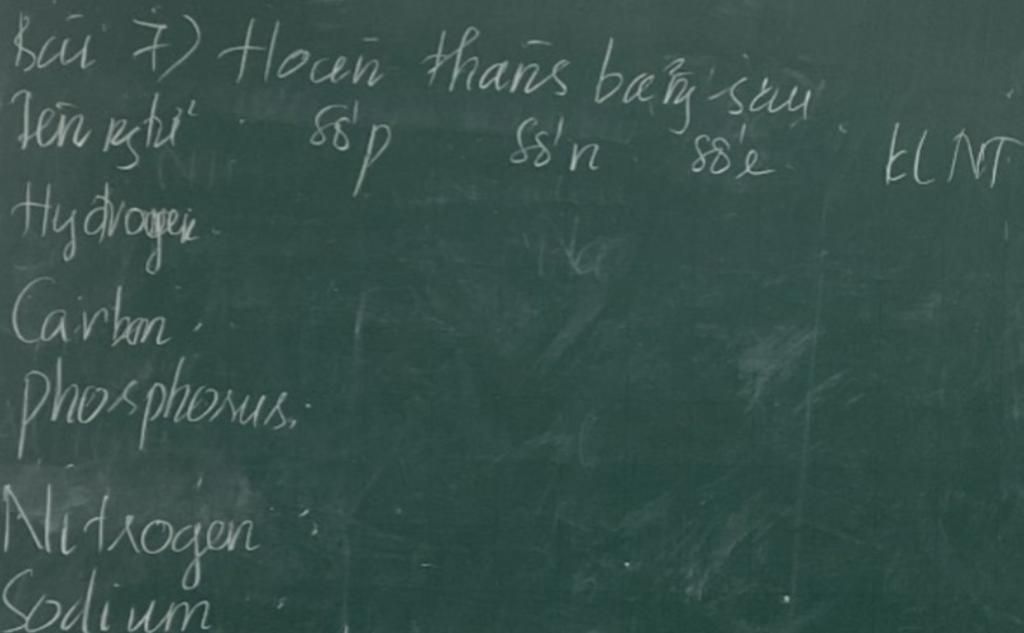 Bài 7) Hoàn thành bảng sau
Tên ngtử số p số n số e KLNT
Hydrogen
Carbon
Phosphorus
Nitrogen
Sodium